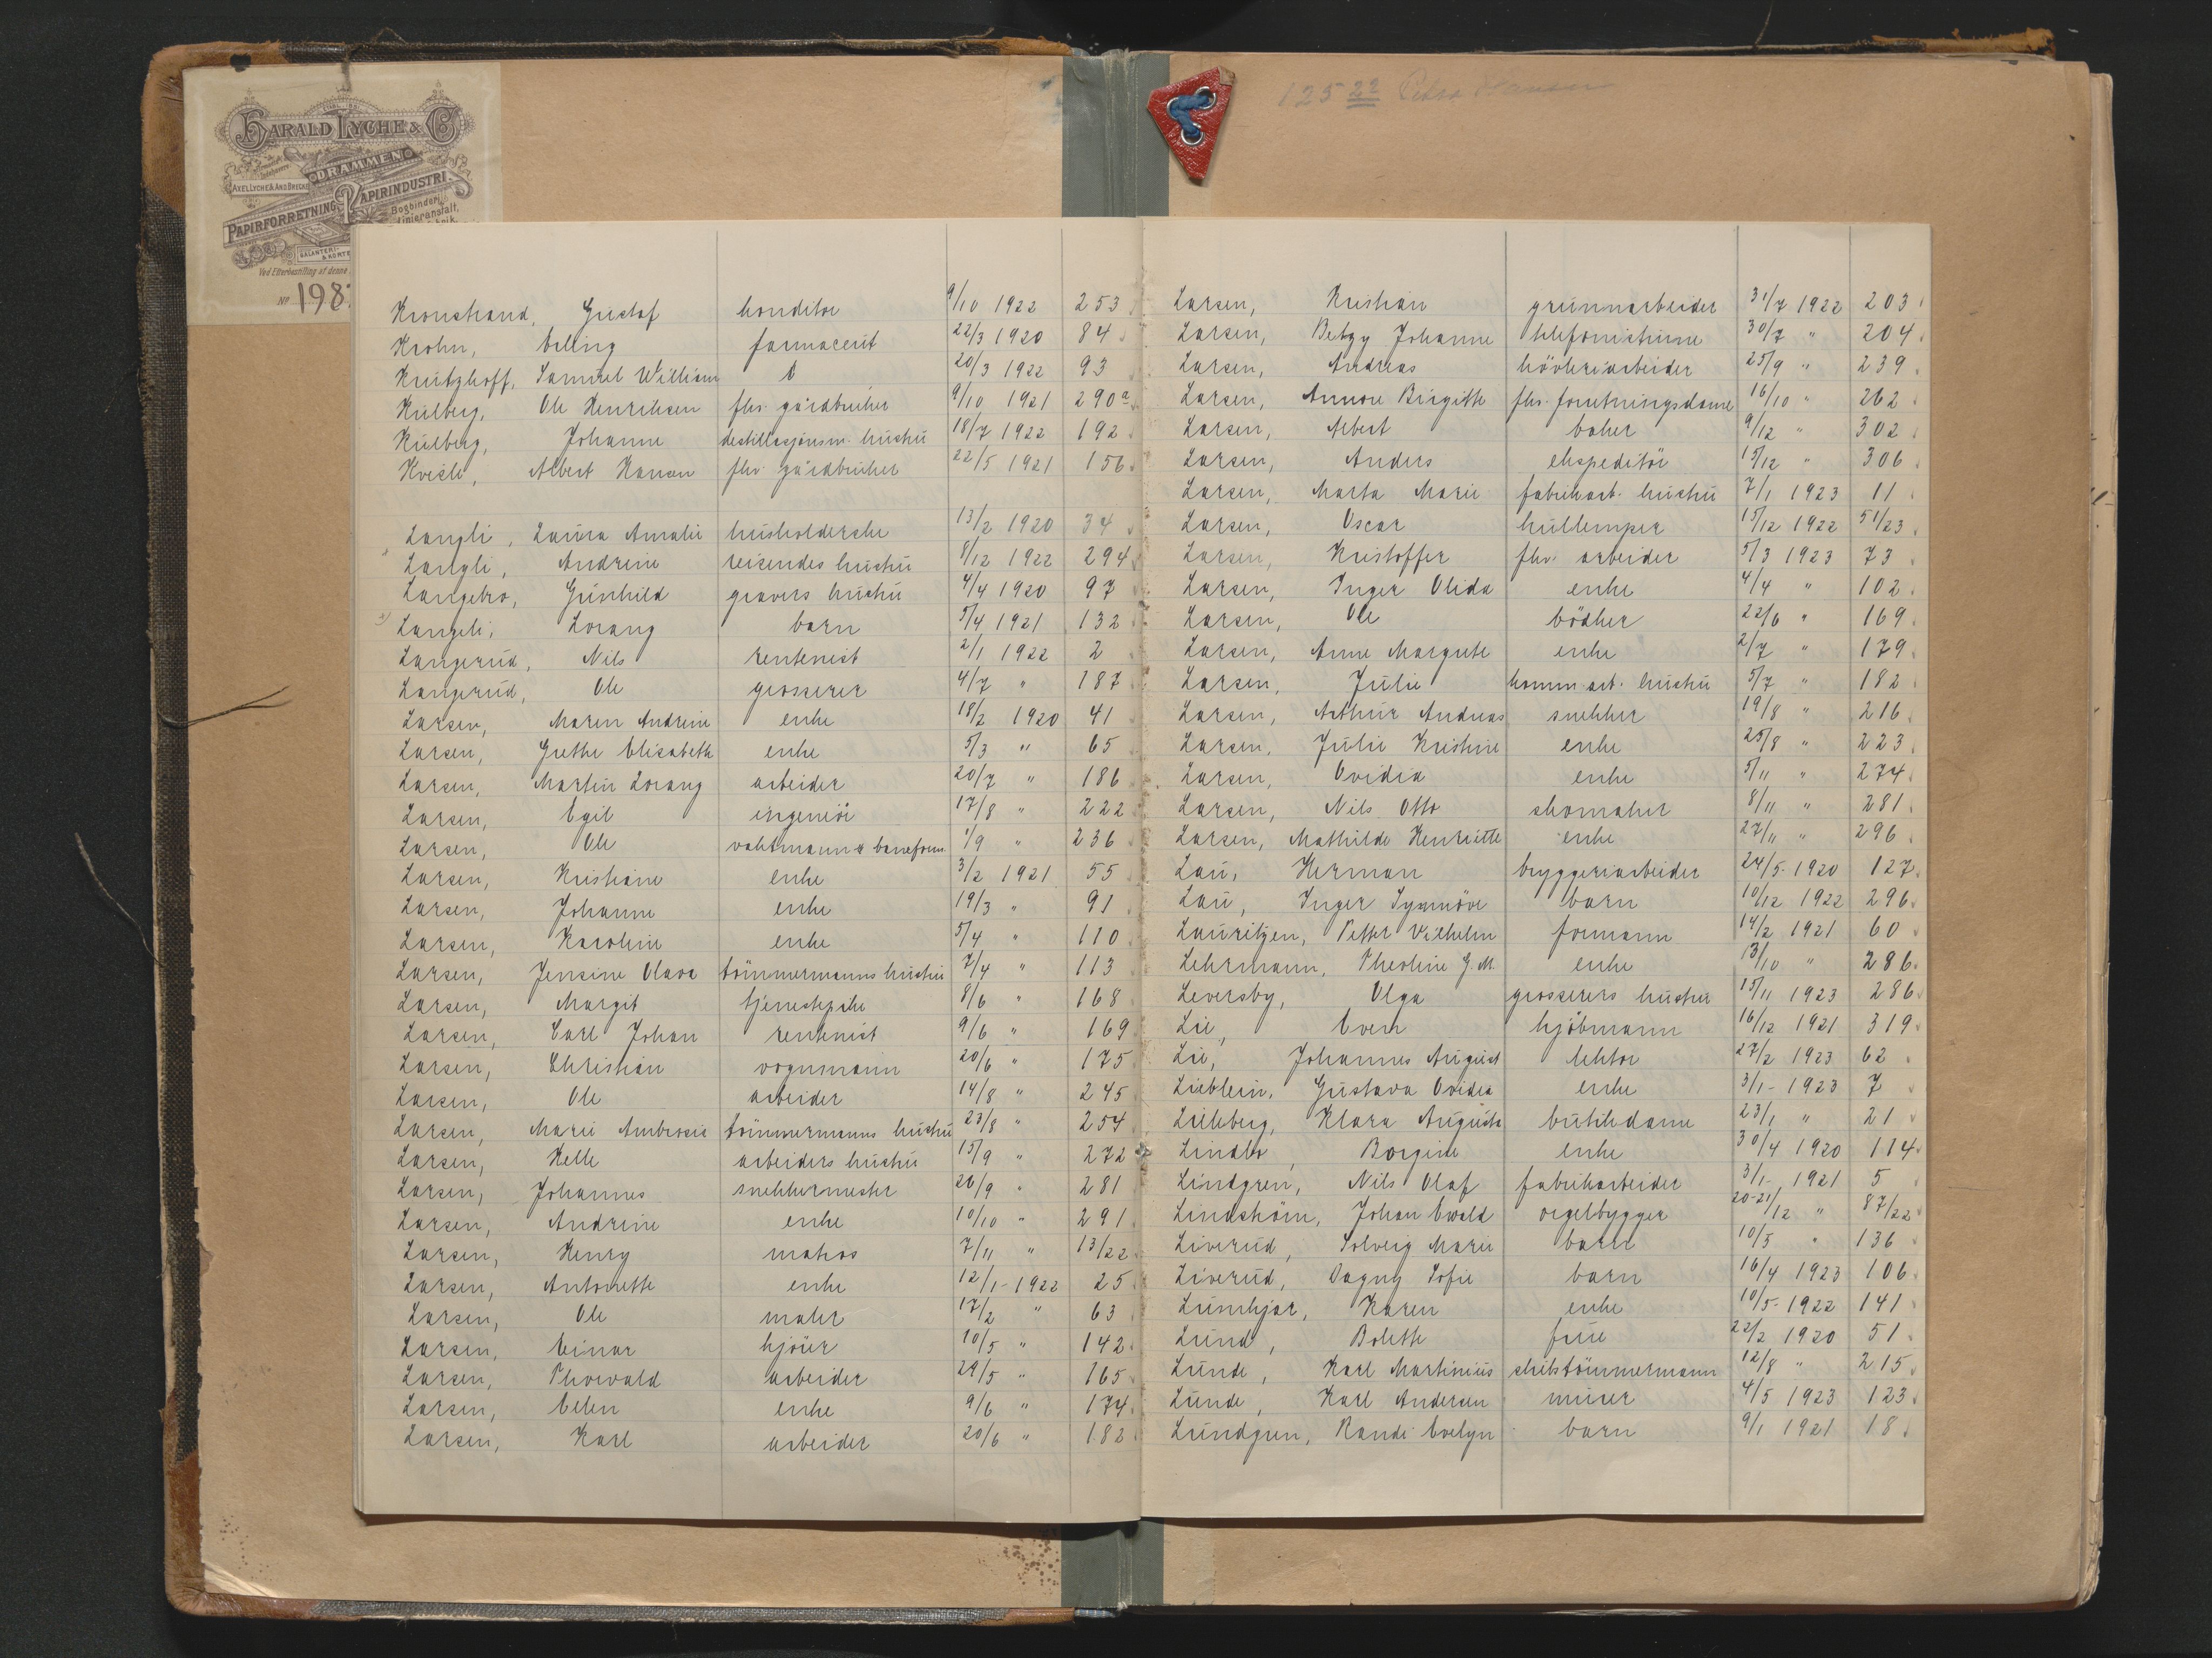 HARALD LYCHE & Co
DRAMMEN
AXEL LYCHE &
PAPIRFORRETNING PAPIRINDUSTRI
Bogbinderi,
Linieranstalt,
GALANTERI-
& KORTE
Ved Efterbestilling af denne
No 198
125 22 Petra Hansen
Kronstrand, Gustaf konditor 9/10 1922 253
Krohn, Elling farmaceut 22/3 1920 84
Kreitzhoff, Samuel William 20/3 1922 93
Kulberg, Ole Henriksen fhv. gårdbruker 9/10 1921 290a
Kulberg, Johanne destillasjonsm. hustru 18/7 1922 192
Kvisle, Albert Hansen fhv. gårdbruker 22/5 1921 156
Langli, Laura Amalie husholderske 13/2 1920 34
Langli, Andrine reisendes hustru 8/12 1922 294
Langebro, Gunhild gravers hustru 4/4 1920 97
Langeli, Lorang barn 5/4 1921 132
Langerud, Nils rentenist 2/1 1922 2
Langerud, Ole grosserer 4/7 " 187
Larsen, Maren Andrine enke 18/2 1920 41
Larsen, Grethe Elisabeth enke 5/3 " 65
Larsen, Martin Lorang arbeider 20/7 " 186
Larsen, Egil ingeniör 17/8 " 222
Larsen, Ole vaktmann & baneform. 1/9 " 236
Larsen, Kristiane enke 3/2 1921 55
Larsen, Johanne enke 19/3 " 91
Larsen, Karoline enke 5/4 " 110
Larsen, Jensine Olava tömmermanns hustru 7/4 " 113
Larsen, Margit tjenestepike 8/6 " 168
Larsen, Carl Johan rentenist 9/6 " 169
Larsen, Christian vognmann 20/6 " 175
Larsen, Ole arbeider 14/8 " 245
Larsen, Marie Ambrosia tömmermanns hustru 23/8 " 254
Larsen, Helle arbeiders hustru 15/9 " 272
Larsen, Johannes snekkermester 26/9 " 281
Larsen, Andrine enke 10/10 " 291
Larsen, Henry matros 7/11 " 13/22
Larsen, Antonette enke 12/1- 1922 25
Larsen, Ole maler 17/2 " 63
Larsen, Einar kjörer 10/5 " 142
Larsen, Thorvald arbeider 29/5 " 165
Larsen, Elen enke 9/6 " 174
Larsen, Karl arbeider 20/6 " 182
Larsen, Kristian grunnarbeider 31/7 1922 203
Larsen, Betzy Johanne telefonistinne 30/7 " 204
Larsen, Andreas hövleriarbeider 25/9 " 239
Larsen, Annore Birgitte fhv. forretningsdame 16/10 " 262
Larsen, Albert baker 9/12 " 302
Larsen, Anders ekspeditör 15/12 " 306
Larsen, Marta Marie fabrikarb. hustru 7/1 1923 11
Larsen, Oscar kullemper 15/12 1922 51/23
Larsen, Kristoffer fhv. arbeider 5/3 1923 73
Larsen, Inger Olida enke 4/4 " 102
Larsen, Ole bödker 22/6 " 169
Larsen, Anne Margrete enke 2/7 " 179
Larsen, Julie komm.arb. hustru 5/7 " 182
Larsen, Arthur Andreas snekker 19/8 " 216
Larsen, Julie Kristine enke 25/8 " 223
Larsen, Ovidia enke 5/11 " 274
Larsen, Nils Otto skomaker 8/11 " 281
Larsen, Mathilde Henriette enke 27/11 " 296
Lau, Herman bryggeriarbeider 24/5- 1920 127
Lau, Inger Synnöve barn 10/12 1922 296
Lauritzen, Petter Vilhelm formann 14/2 1921 60
Lehrmann, Theoline G. M. enke 13/10 " 286
Leversby, Olga grosserers hustru 15/11 1923 286
Lie, Even kjöbmann 16/12 1921 319
Lie, Johannes August lektor 27/2 1923 62
Lieblein, Gustava Ovidia enke 3/1- 1923 7
Lilleberg, Klara Augusta butikkdame 23/1 " 21
Lindbo, Borgine enke 30/4 1920 114
Lindgren, Nils Olaf fabrikarbeider 3/1- 1921 5
Lindström, Johan Evald orgelbygger 20-21/12 " 87/22
Liverud, Solveig Marie barn 10/5 " 136
Liverud, Dagny Sofie barn 16/4 1923 106
Lumkjær, Karen enke 10/5- 1922 141
Lund, Bolette frue 22/2 1920 51
Lunde, Karl Martinius skibstömmermann 12/8 " 215
Lunde, Karl Andersen murer 4/5 1923 123
Lundgren, Randi Evelyn barn 9/1 1921 18